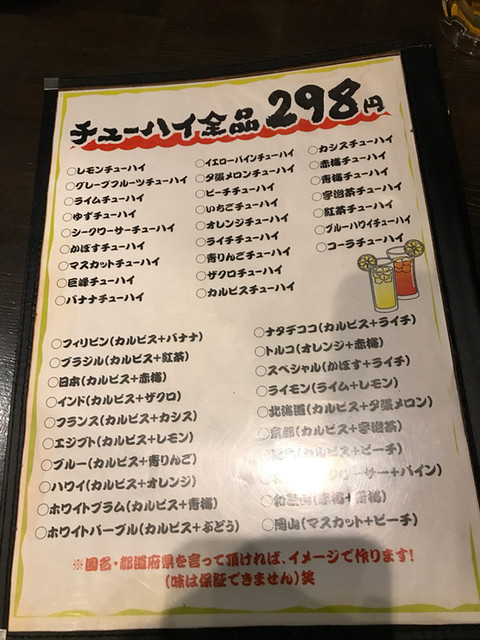 チューハイ全品298円
○レモンチューハイ
○グレープフルーツチューハイ
○ライムチューハイ
○ゆずチューハイ
○シークワーサーチューハイ
○かぼすチューハイ
○マスカットチューハイ
○巨峰チューハイ
○バナナチューハイ
○イエローパインチューハイ
○夕張メロンチューハイ
○ピーチチューハイ
○いちごチューハイ
○オレンジチューハイ
○ライチチューハイ
○青りんごチューハイ
○ザクロチューハイ
○カルピスチューハイ
○カシスチューハイ
○赤梅チューハイ
○青梅チューハイ
○宇治茶チューハイ
○紅茶チューハイ
○ブルーハワイチューハイ
○コーラチューハイ
○フィリピン(カルピス+バナナ)
○ブラジル(カルピス+紅茶)
○日本(カルピス+赤梅)
○インド(カルピス+ザクロ)
○フランス(カルピス+カシス)
○エジプト(カルピス+レモン)
○ブルー(カルピス+青りんご)
○ハワイ(カルピス+オレンジ)
○ホワイトプラム(カルピス+青梅)
○ホワイトパープル(カルピス+ぶどう)
○ナタデココ(カルピス+ライチ)
○トルコ(オレンジ+赤梅)
○スペシャル(かぼす+ライチ)
○ライモン(ライム+レモン)
○北海道(カルピス+夕張メロン)
○京都(カルピス+宇治茶)
(カルピス+ピーチ)
ワーサー+パイン)
○和歌山(赤梅+青梅)
○岡山(マスカット+ピーチ)
※国名・都道府県を言って頂ければ、イメージで作ります!
(味は保証できません)笑